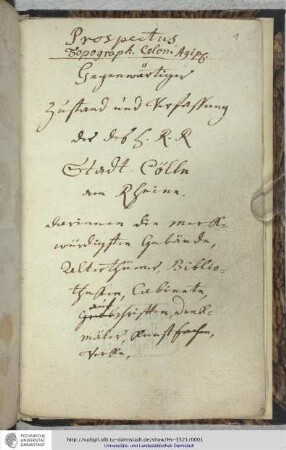 Prospectus
Topograph. Colon. Agipp.
1
Gegenwärtiger
Zustand und Verfassung
der des H. R. R
Stadt Cölln
am Rheine.
darinnen die merk-
würdigsten Gebäude,
Alterthümer, Biblio-
theken, Cabinete,
auf
schriften, Denk-
mäler, Kunst sachen,
Werke,
TECHNISCHE
UNIVERSITÄT
DARMSTADT
http://tudigit.ulb.tu-darmstadt.de/show/Hs-3321/0001
Universitäts- und Landesbibliothek Darmstadt